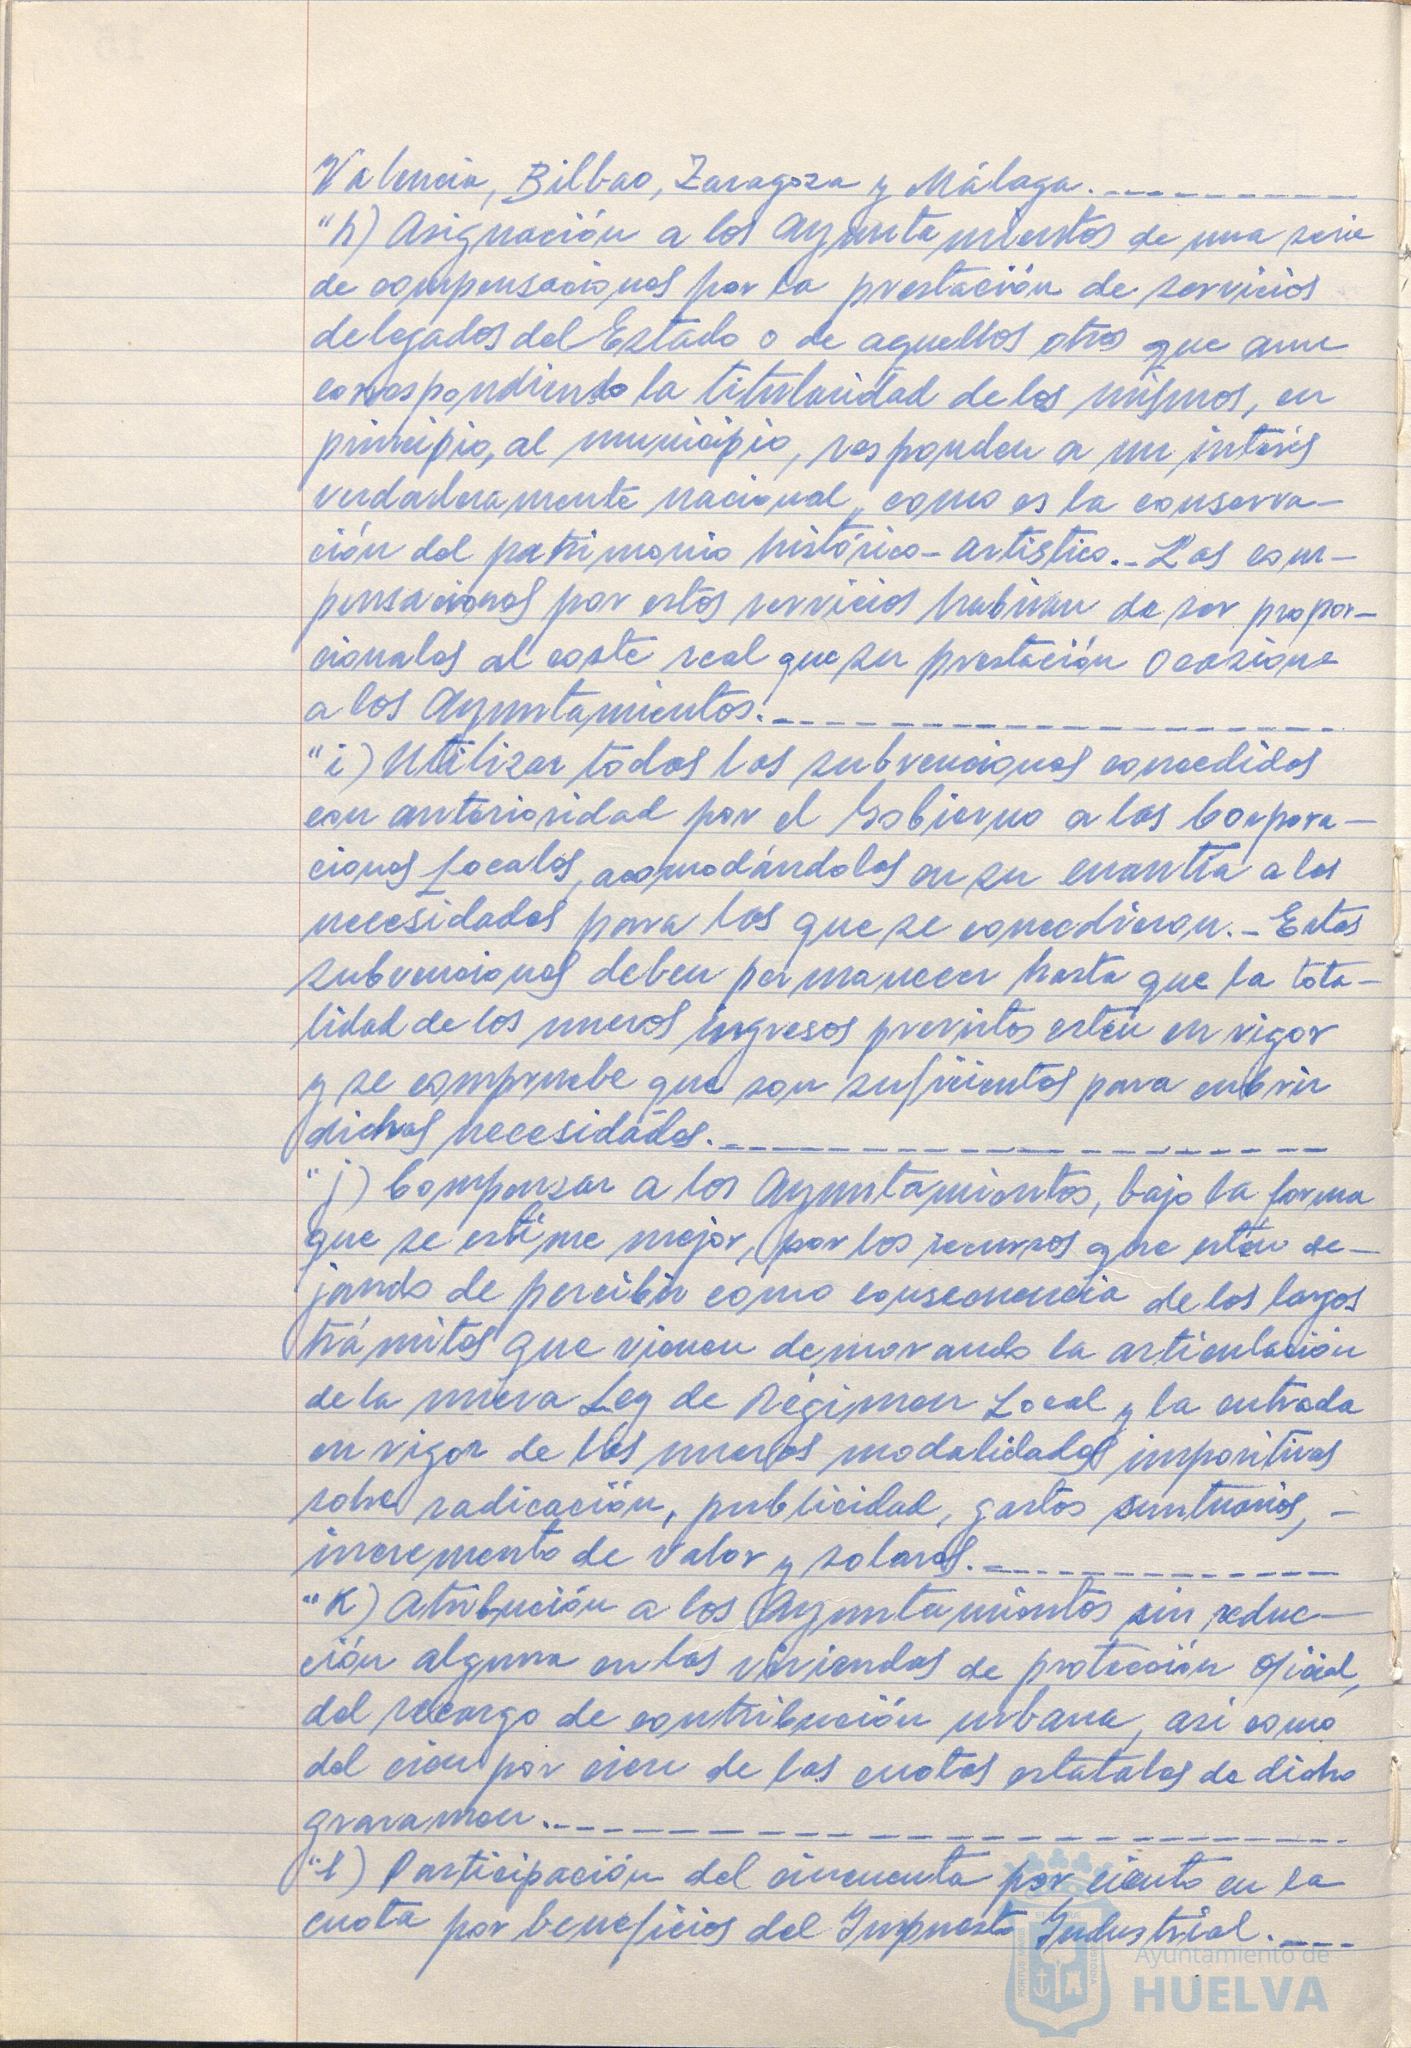 Valencia, Bilbao, Zaragoza y Málaga.
"h) Asignación a los Ayuntamientos de una serie
de compensaciones por la prestación de servicios
delegados del Estado o de aquellos otros que aun
correspondiendo la titularidad de los mismos, en
principio, al municipio, responden a un interés
verdaderamente nacional, como es la conserva-
ción del patrimonio histórico-artístico.- Las com-
pensaciones por estos servicios habrían de ser propor-
cionales al coste real que su prestación ocasione
a los Ayuntamientos.
"i) Utilizar todas las subvenciones concedidas
con anterioridad por el Gobierno a las Corpora-
ciones Locales, acomodándolas en su cuantía a las
necesidades para las que se concedieron.- Estas
subvenciones deben permanecer hasta que la tota-
lidad de los nuevos ingresos previstos estén en vigor
y se compruebe que son suficientes para cubrir
dichas necesidades.
"j) Compensar a los Ayuntamientos, bajo la forma
que se estime mejor, por los recursos que estén de-
jando de percibir como consecuencia de los largos
trámites que vienen demorando la articulación
de la nueva Ley de Régimen Local y la entrada
en vigor de las nuevas modalidades impositivas
sobre radicación, publicidad, gastos suntuarios, -
incremento de valor y solares.
"k) Atribución a los Ayuntamientos sin reduc-
ción alguna en las viviendas de protección oficial,
del recargo de contribución urbana, asi como
del cien por cien de las cuotas estatales de dicho
gravamen.
"l) Participación del cincuenta por ciento en la
cuota por beneficios del Impuesto Industrial.
Ayuntamiento de
HUELVA